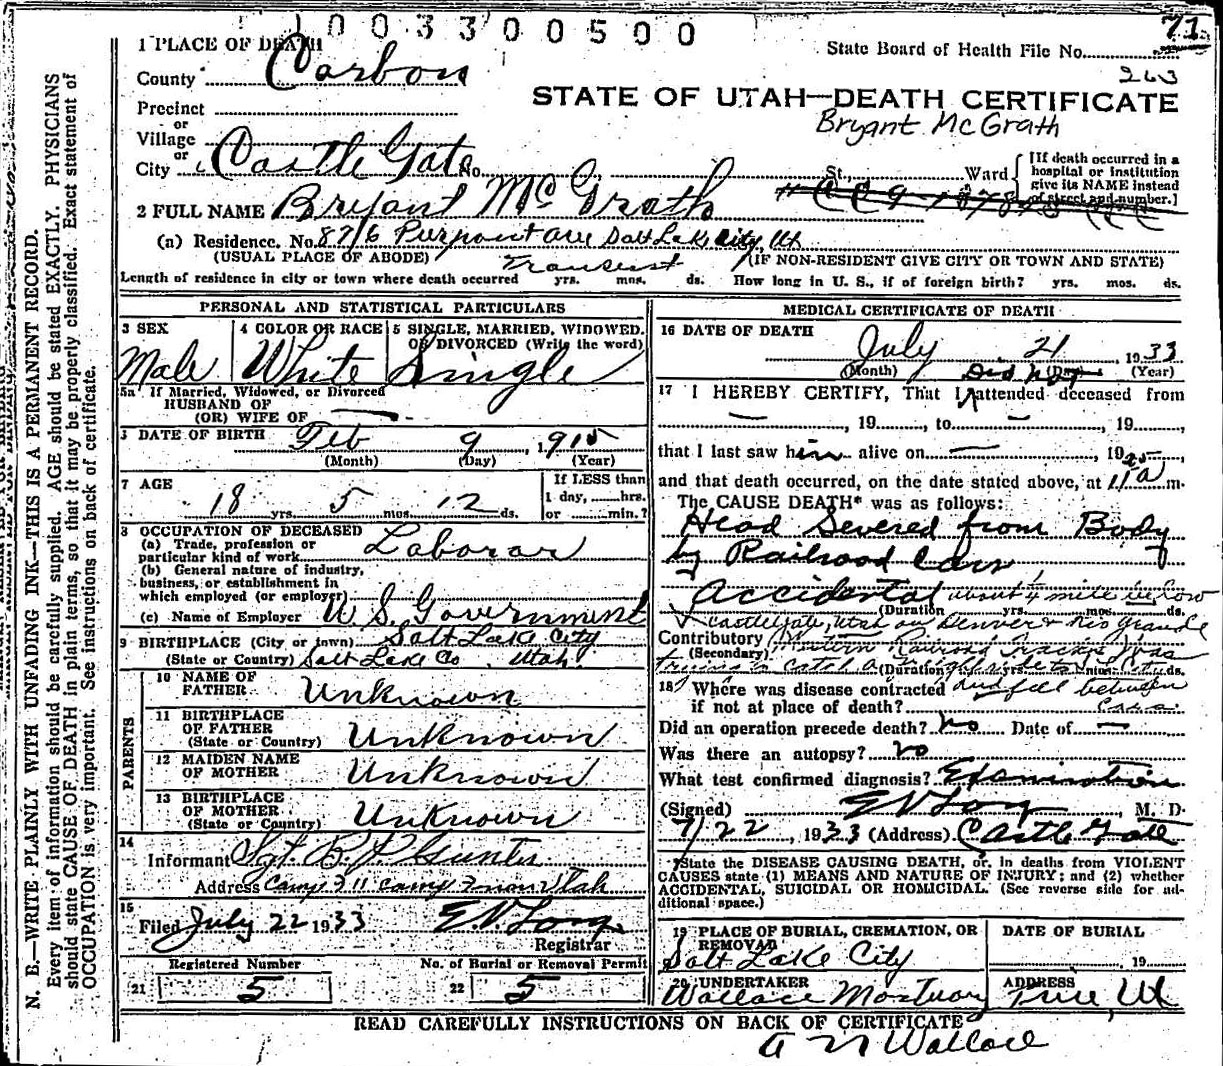 0033 00500
71
1 PLACE OF DEATH
State Board of Health File No.
County Carbon
263
STATE OF UTAH—DEATH CERTIFICATE
Bryant McGrath
Precinct
or
Village
or
City Castle Gate No. St., Ward
[If death occurred in a hospital or institution give its NAME instead of street and number.]
2 FULL NAME Bryant McGrath
(a) Residence. No. 876 Pierpont Ave Salt Lake City, Ut
(USUAL PLACE OF ABODE) (IF NON-RESIDENT GIVE CITY OR TOWN AND STATE)
Transient
Length of residence in city or town where death occurred yrs. mos. ds. How long in U. S., if of foreign birth? yrs. mos. ds.
PERSONAL AND STATISTICAL PARTICULARS
3 SEX
Male
4 COLOR OR RACE
White
5 SINGLE, MARRIED, WIDOWED.
OR DIVORCED (Write the word)
Single
5a If Married, Widowed, or Divorced
HUSBAND OF
(OR) WIFE OF —
DATE OF BIRTH Feb 9, 1915
(Month) (Day) (Year)
7 AGE
18 yrs. 5 mos. 12 ds.
If LESS than
1 day, hrs.
or min.?
8 OCCUPATION OF DECEASED
(a) Trade, profession or
particular kind of work Laborar
(b) General nature of industry,
business, or establishment in
which employed (or employer)
(c) Name of Employer U S. Government
9 BIRTHPLACE (City or town) Salt Lake City
(State or Country) Salt Lake Co. Utah
PARENTS
10 NAME OF
FATHER Unknown
11 BIRTHPLACE
OF FATHER
(State or Country) Unknown
12 MAIDEN NAME
OF MOTHER Unknown
13 BIRTHPLACE
OF MOTHER
(State or Country) Unknown
14
Informant Sgt. B. P. Gunter
Address Camp
15
Filed July 22 1933 E.V. Long
Registrar
Registered Number
21 5
No. of Burial or Removal Permit
22 5
MEDICAL CERTIFICATE OF DEATH
16 DATE OF DEATH
July 21, 1933
(Month) (Day) (Year)
Did not
17 I HEREBY CERTIFY, That I attended deceased from
—, 19, to —, 19,
that I last saw him alive on —, 19
and that death occurred, on the date stated above, at 11 a m.
The CAUSE DEATH* was as follows:
Head Severed from Body
by Railroad Cars
Accidental about mile below
(Duration yrs. mos. ds.
Castlegate, Utah on Denver & Rio Grande
Contributory Western Railroad Tracks Was
(Secondary)
trying to catch a (Duration yrs. mos. ds.
18 Where was disease contracted and fell between
if not at place of death? cars.
Did an operation precede death? No Date of —
Was there an autopsy? no
What test confirmed diagnosis? Examination
(Signed) E V Long, M. D.
7/22, 1933 (Address) Castle Gate
*State the DISEASE CAUSING DEATH, or, in deaths from VIOLENT
CAUSES state (1) MEANS AND NATURE OF INJURY; and (2) whether
ACCIDENTAL, SUICIDAL OR HOMICIDAL. (See reverse side for ad-
ditional space.)
19 PLACE OF BURIAL, CREMATION, OR
REMOVAL
Salt Lake City
DATE OF BURIAL
19
20 UNDERTAKER
Wallace Mortuary
ADDRESS
Price, Ut
READ CAREFULLY INSTRUCTIONS ON BACK OF CERTIFICATE
A N Wallace
N. B.—WRITE PLAINLY WITH UNFADING INK—THIS IS A PERMANENT RECORD.
Every item of information should be carefully supplied. AGE should be stated EXACTLY. PHYSICIANS
should state CAUSE OF DEATH in plain terms, so that it may be properly classified. Exact statement of
OCCUPATION is very important. See instructions on back of certificate.